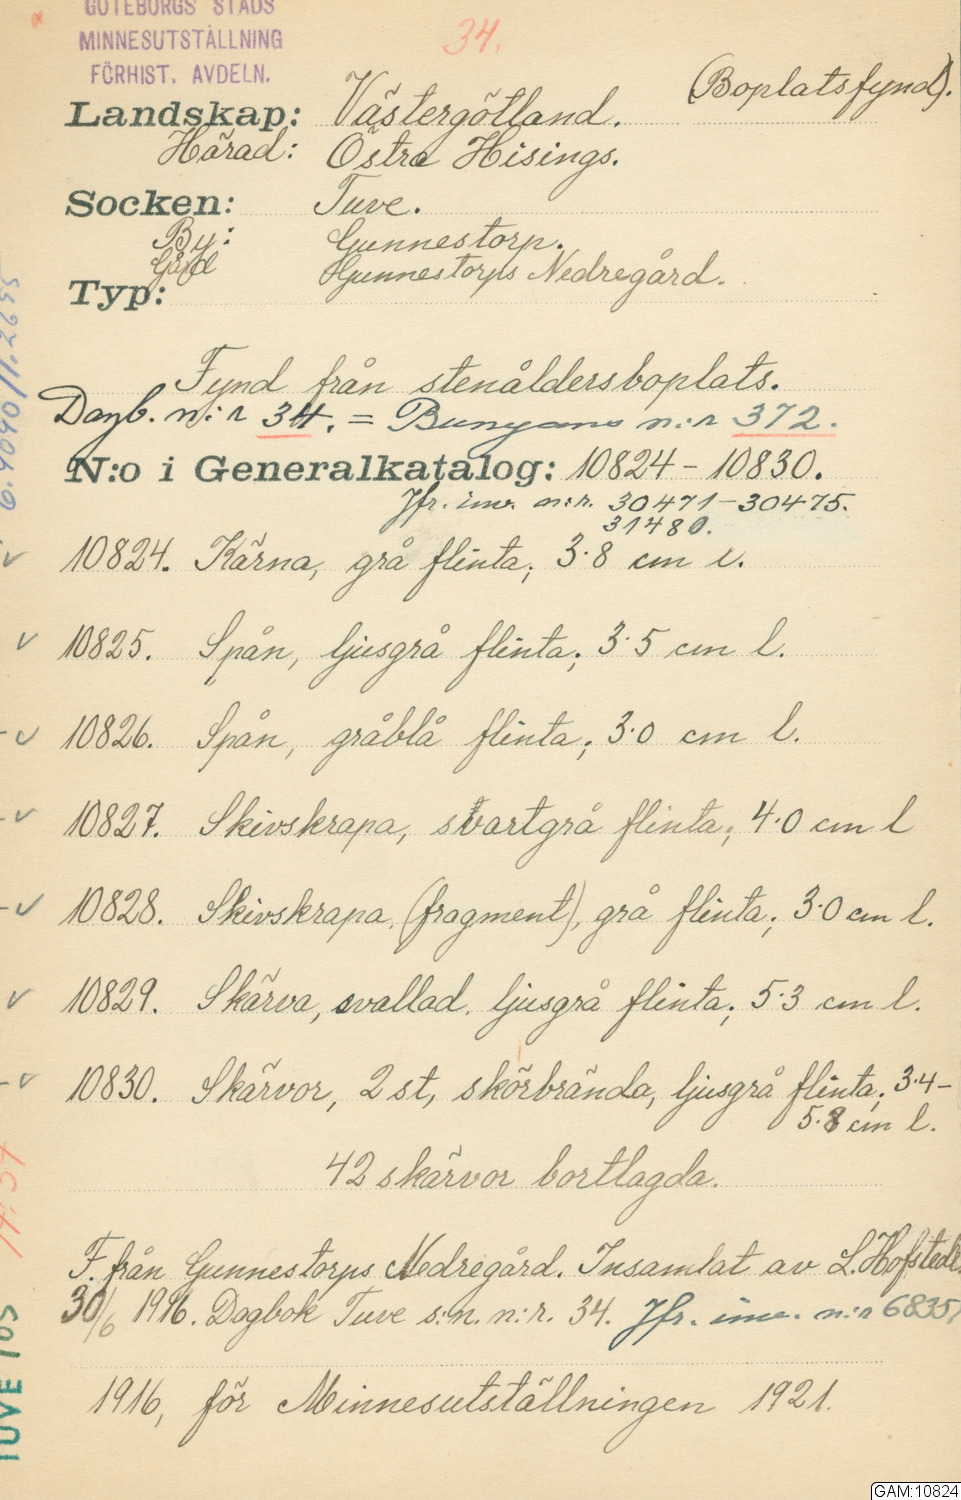 GÖTEBORGS STADS
MINNESUTSTÄLLNING
FÖRHIST. AVDELN.
34.
(Boplatsfynd).
Landskap: Västergötland.
Härad: Östra Hisings.
Socken: Tuve.
By: Gunnestorp.
Gård Gunnestorps Nedregård.
Typ:
Fynd från stenåldersboplats.
Dagb. n:r 34. = Bunyans n:r 372.
N:o i Generalkatalog: 10824 – 10830.
Jfr. inv. n:r. 30471 – 30475.
31480.
10824. Kärna, grå flinta; 3·8 cm l.
10825. Spån, ljusgrå flinta; 3·5 cm l.
10826. Spån, gråblå flinta; 3·0 cm l.
10827. Skivskrapa, svartgrå flinta; 4·0 cm l
10828. Skivskrapa, (fragment), grå flinta; 3·0 cm l.
10829. Skärva, svallad, ljusgrå flinta; 5·3 cm l.
10830. Skärvor, 2 st, skörbrända, ljusgrå flinta; 3·4 –
5·8 cm l.
42 skärvor bortlagda.
F. från Gunnestorps Nedregård. Insamlat av L. Hofstedt
30/6 1916. Dagbok Tuve s:n. n:r. 34. Jfr. inv. n:r 6835/
1916, för Minnesutställningen 1921.
TUVE 105
GAM:10824